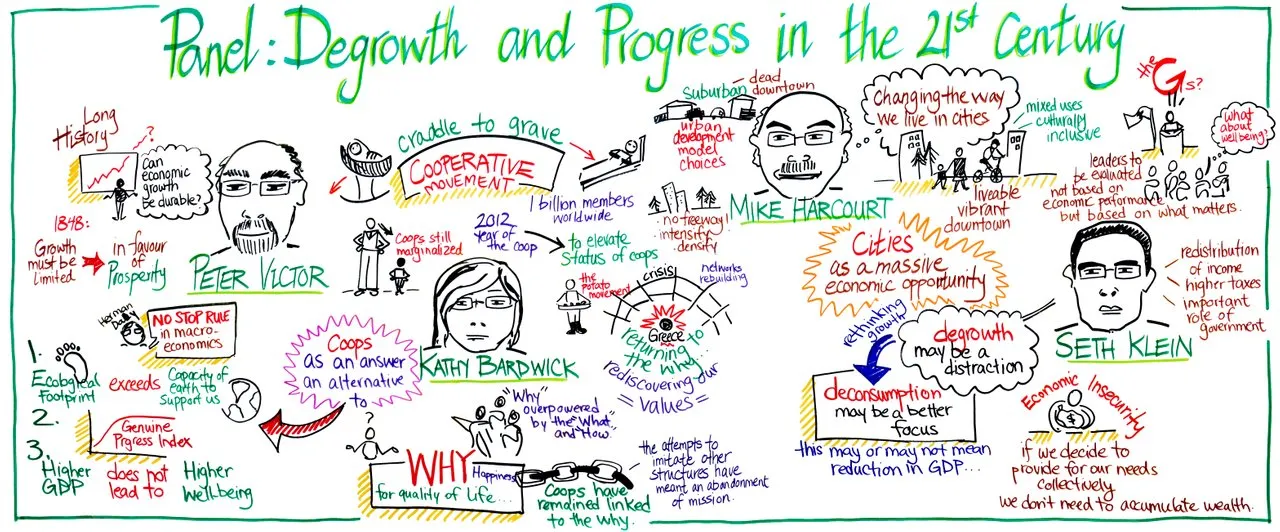 Panel: Degrowth and Progress in the 21st Century
Long
History
?
Can
economic
growth
be durable?
1848:
Growth
must be
limited
in favour
of
Prosperity
PETER VICTOR
Herman
Daly
NO STOP RULE
in macro-
economics
1.
Ecological
Footprint
exceeds
Capacity of
earth to
support us
2.
Genuine
Prgress Index
3.
Higher
GDP
does not
lead to
Higher
Wellbeing
craddle to grave
COOPERATIVE
MOVEMENT
1 billion members
worldwide
Coops still
marginalized
2012
year of
the coop
to elevate
Status of coops
KATHY BARDWICK
Coops
as an answer
an alternative
to
?
the
potato
movement
crisis
networks
rebuilding
Greece
returning to
the why...
rediscovering our
= values =
"Why"
overpowered
by the "What"
and "How."
WHY
Happiness
for quality of life...
Coops have
remained linked
to the why.
the attempts to
imitate other
structures have
meant an abandonment
of mission.
suburban
dead
downtown
urban
development
model
choices
MIKE HARCOURT
no freeway
intensify
density
changing the way
we live in cities
mixed uses
culturally
inclusive
liveable
vibrant
downtown
Cities
as a massive
economic opportunity
the Gs?
what
about
wellbeing?
leaders to
be evaluated
not based on
economic peformance
but based on what matters.
SETH KLEIN
redistribution
of income
higher taxes
important
role of
government
degrowth
may be a
distraction
rethinking
growth
deconsumption
may be a better
focus
this may or may not mean
reduction in GDP...
Economic Insecurity
$
if we decide to
provide for our needs
collectively
we don't need to accumulate wealth.